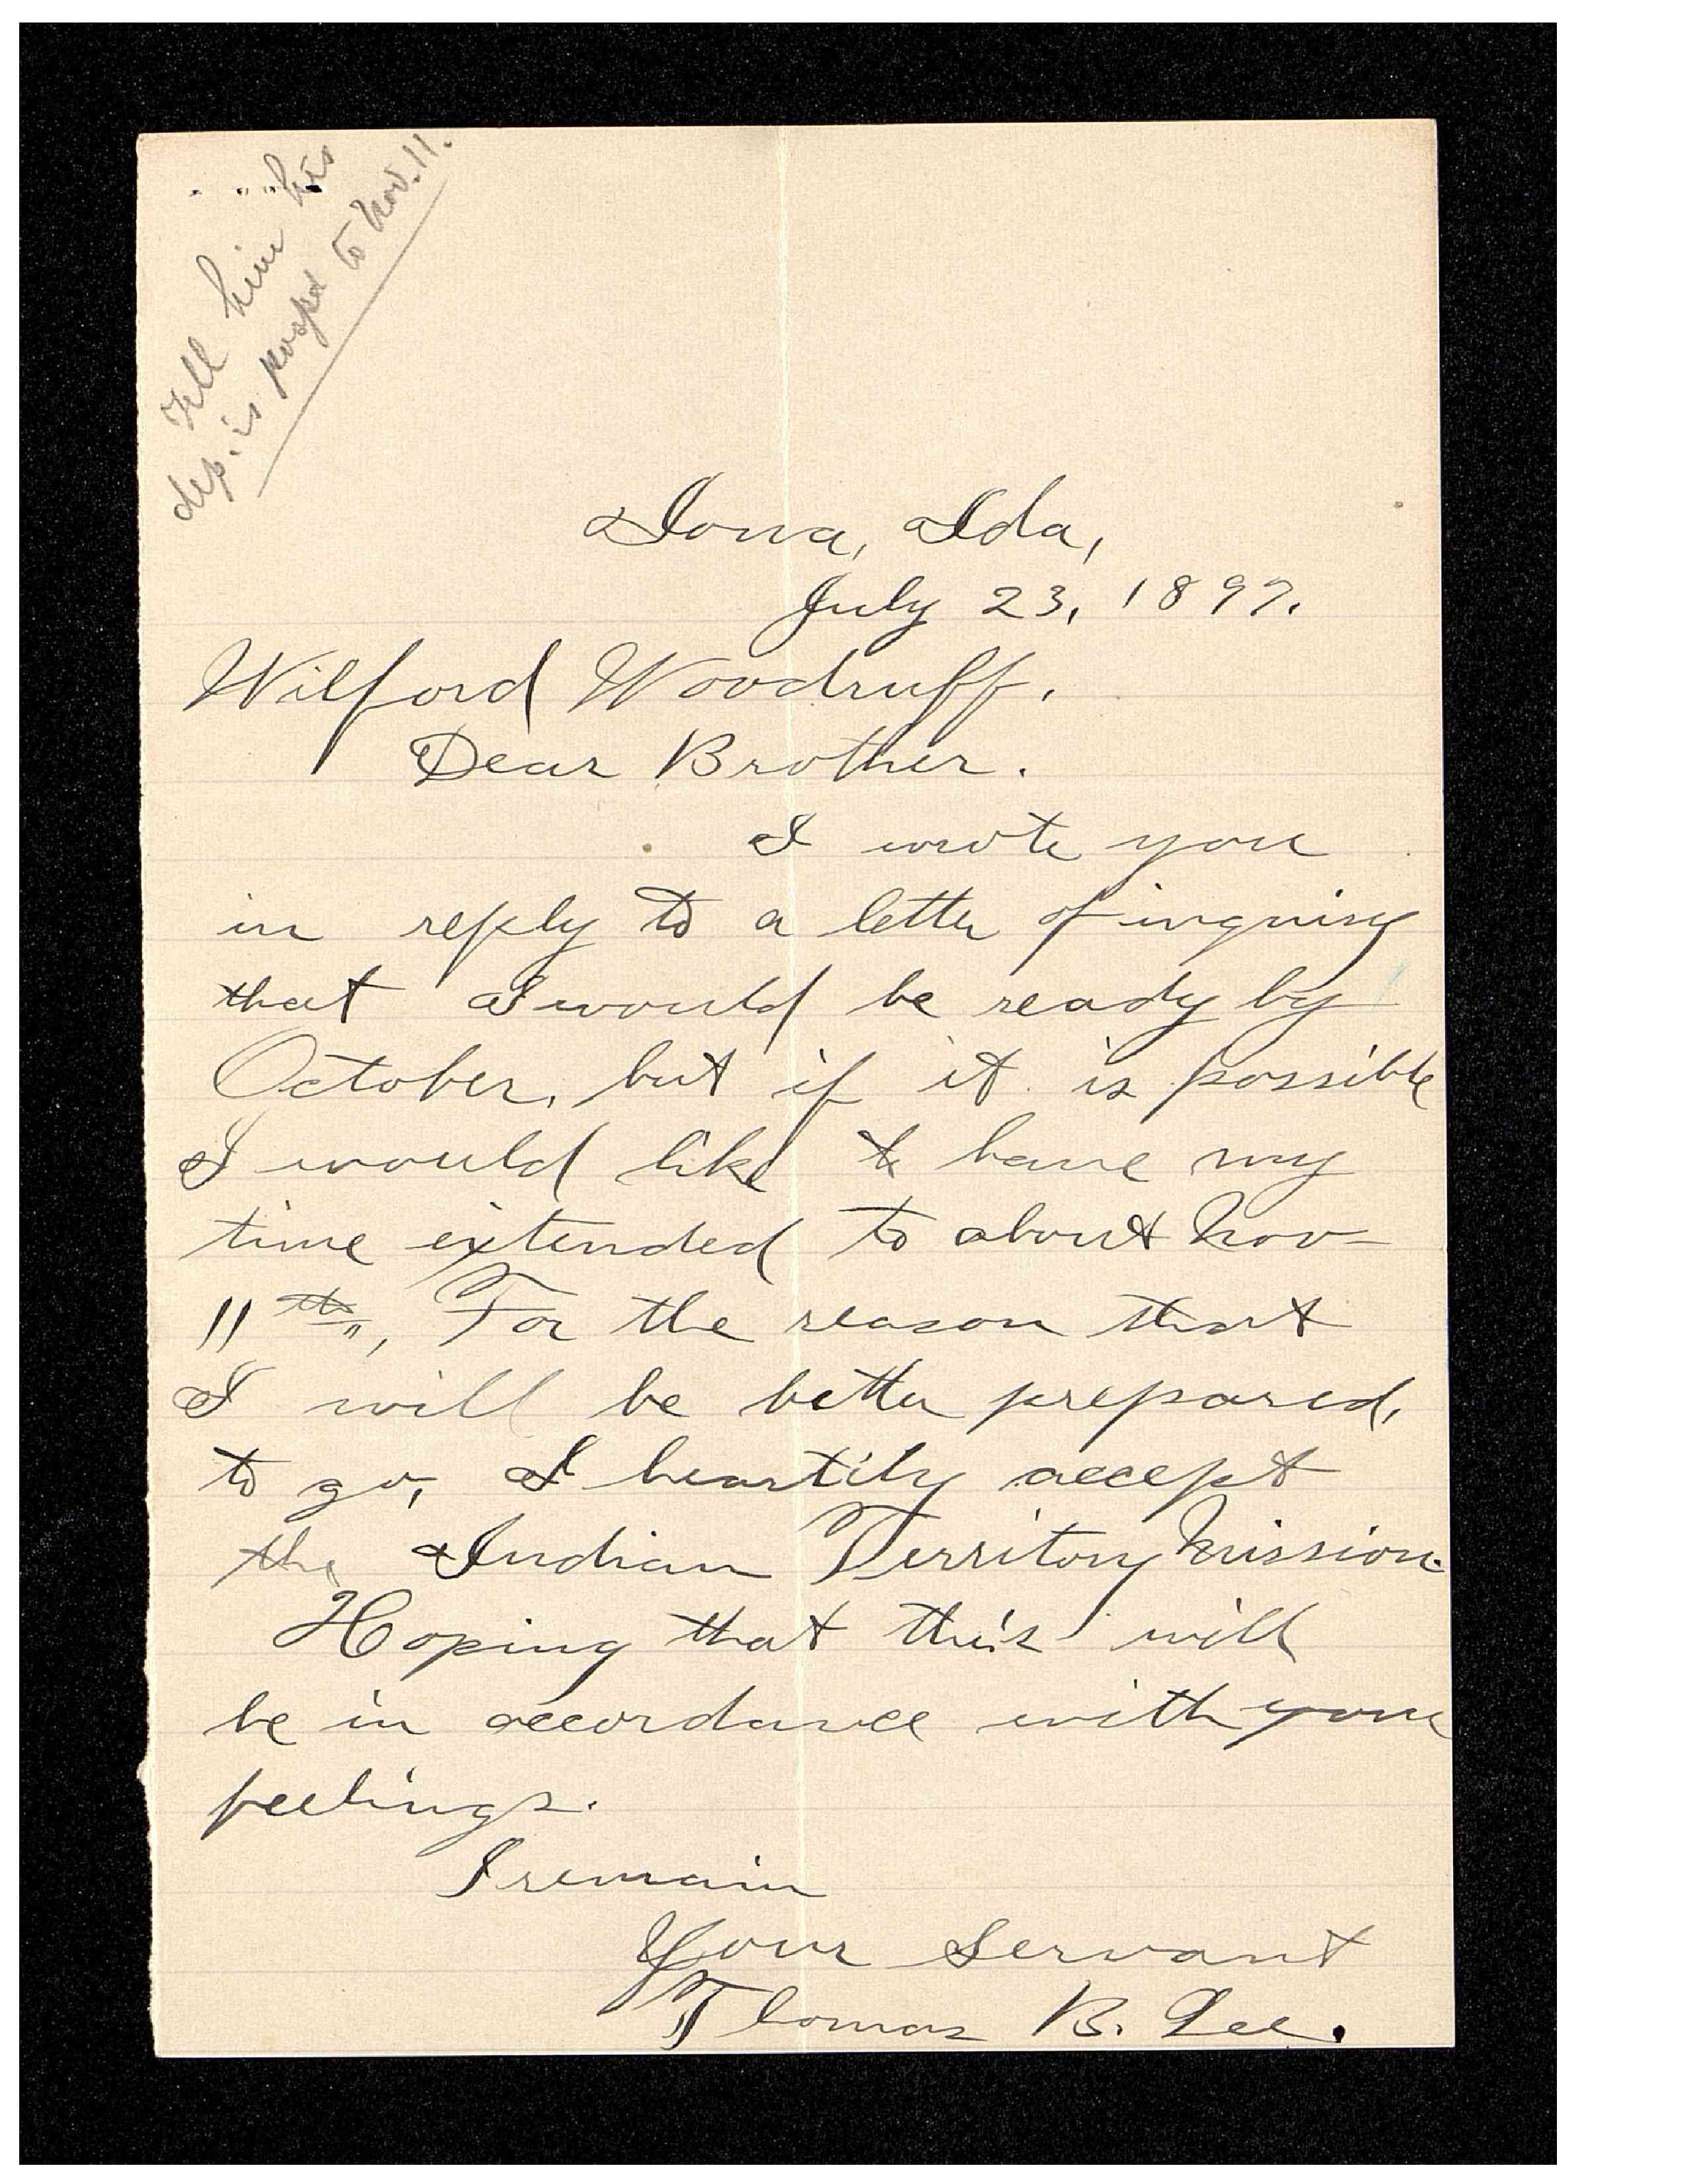 Tell him his
dep. is postpd to Nov. 11.
Iona, Ida,
July 23, 1897.
Wilford Woodruff.
Dear Brother.
I wrote you
in reply to a letter of inquiry
that I would be ready by
October, but if it is possible
I would like to have my
time extended to about Nov
11th, For the reason that
I will be better prepared,
to go, I heartily accept
the Indian Territory Mission.
Hoping that this will
be in accordance with your
feelings.
I remain
Your Servant
Thomas B. Lee.